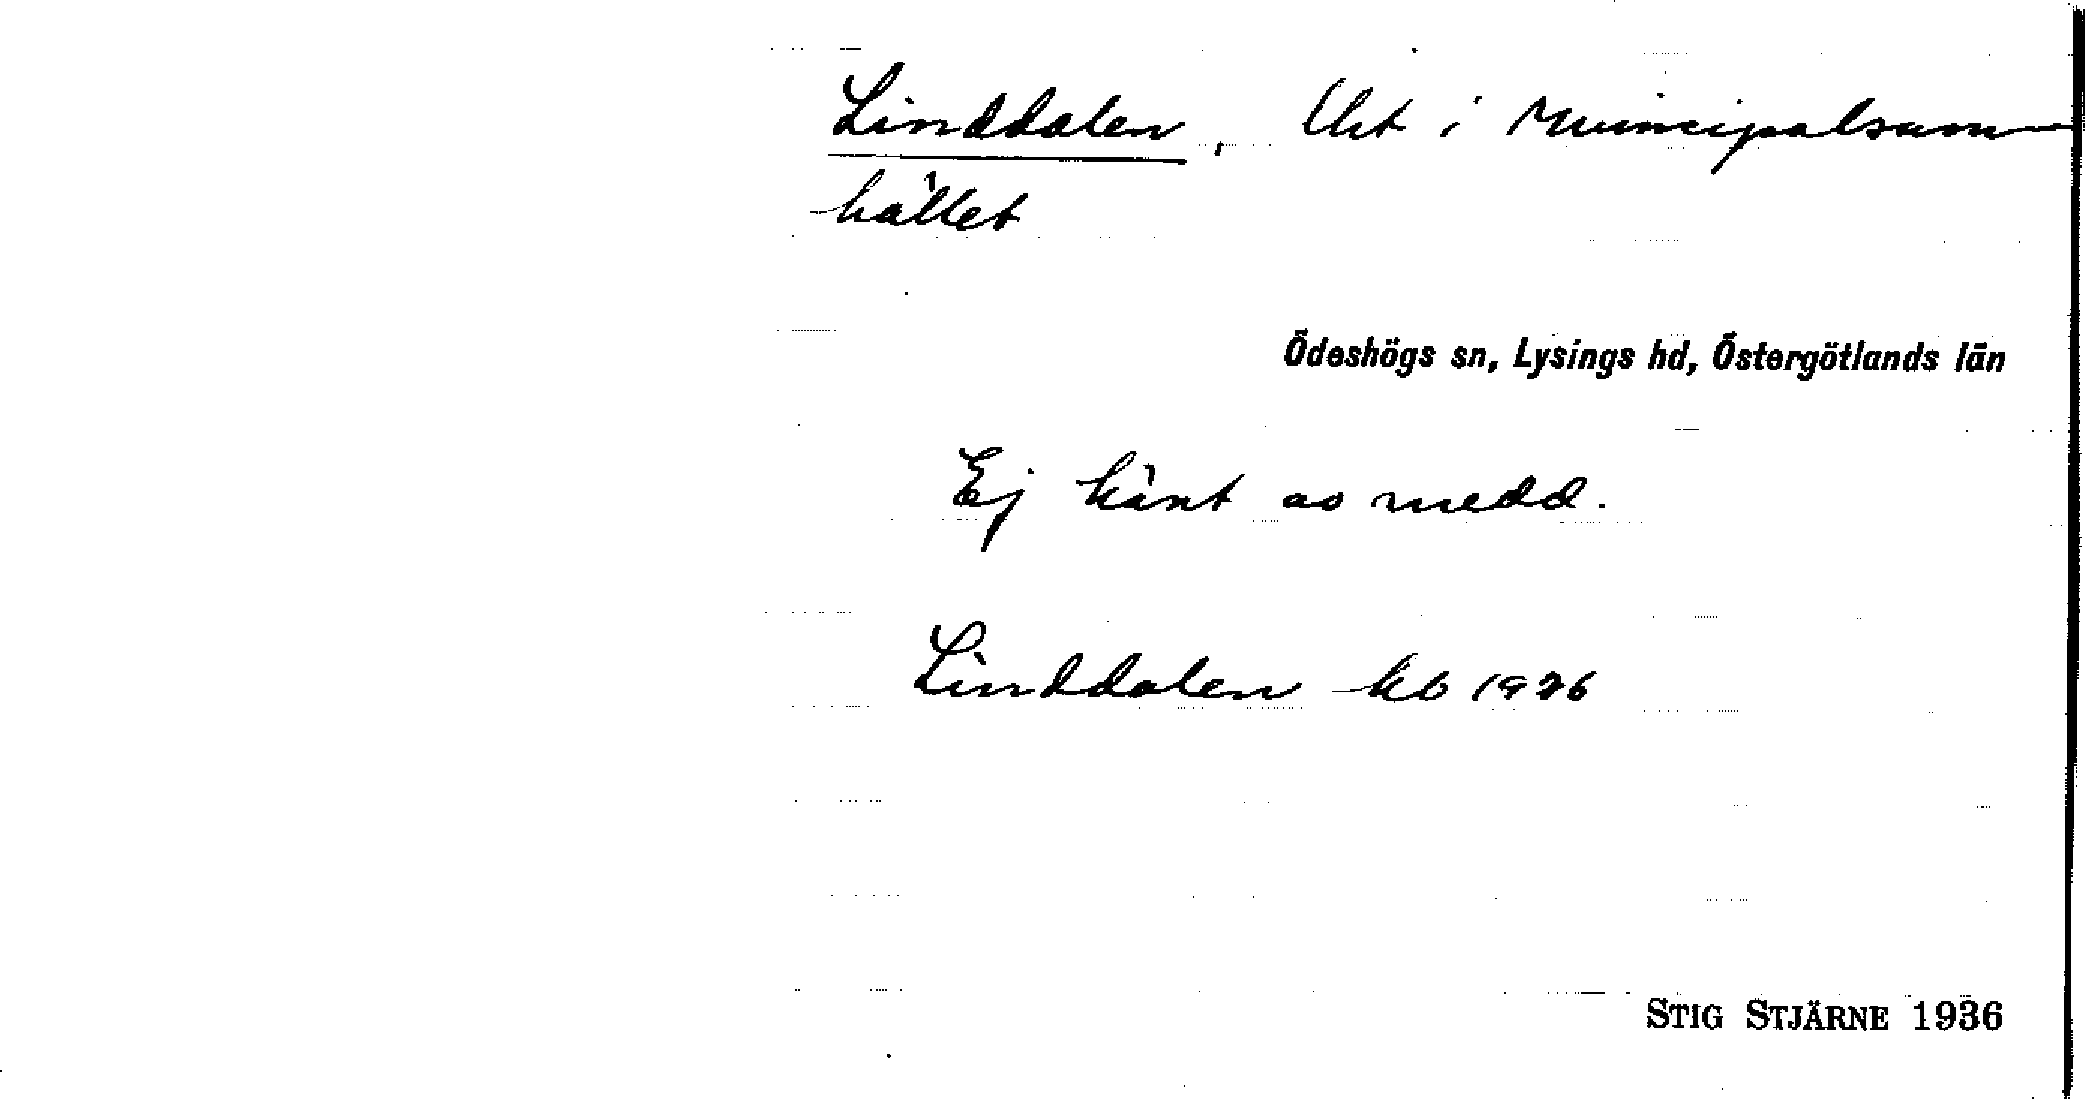 Linddalen, Uht i Municipalsam-
hället
Ödeshögs sn, Lysings hd, Östergötlands län
Ej känt av medd.
Linddalen kb 1926
STIG STJÄRNE 1936